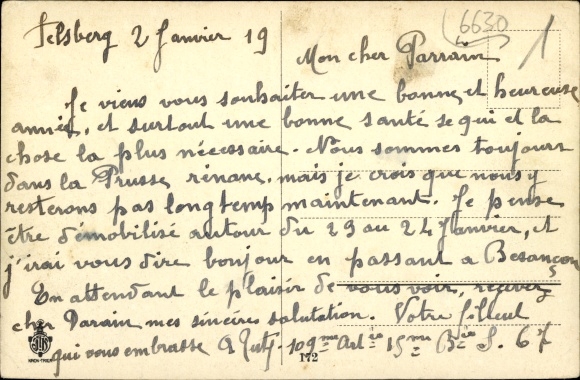 Felsberg 2 Janvier 19
6630
1
Mon cher Parrain
Je viens vous souhaiter une bonne et heureuse
année, et surtout une bonne santé se qui et la
chose la plus nécessaire. Nous sommes toujours
dans la Prusse rénane, mais je crois que nous y
resterons pas longtemp maintenant. Je pense
être démobilisé autour du 23 au 24 Janvier, et
j'irai vous dire bonjour en passant a Besançon
En attendant le plaisir de vous voir, recevez
cher Parain mes sincères salutation. Votre filleul
qui vous embrasse 109me Artie 15me Bie S. 67
172